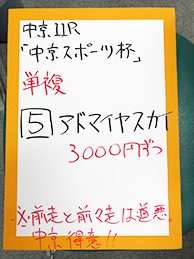 中京11R
「中京スポーツ杯」
単複
5 アドマイヤスカイ
3000円ずつ
※前走と前々走は道悪。
中京得意!!